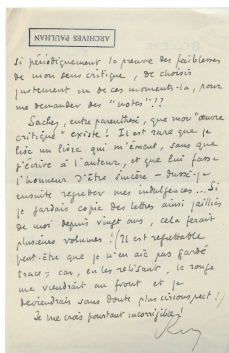 ARCHIVES PAULHAN
si périodiquement la preuve des faiblesses
de mon sens critique, de choisir
justement un de ces moments-là, pour
me demander des "notes"??
Sachez, entre parenthèses, que mon "œuvre
critique" existe! Il est rare que je
lise un livre qui m'émeut, sans que
j'écrive à l'auteur, et que lui fasse
l'honneur d'être sincère – dussé-je
ensuite regretter mes indulgences... Si
je gardais copie des lettres ainsi jaillies
de moi depuis vingt ans, cela ferait
plusieurs volumes! (Il est regrettable
peut-être que je n'en aie pas gardé
trace; car, en les relisant, le rouge
me viendrait au front et je
deviendrais sans doute plus circonspect!)
Je me crois pourtant incorrigible!